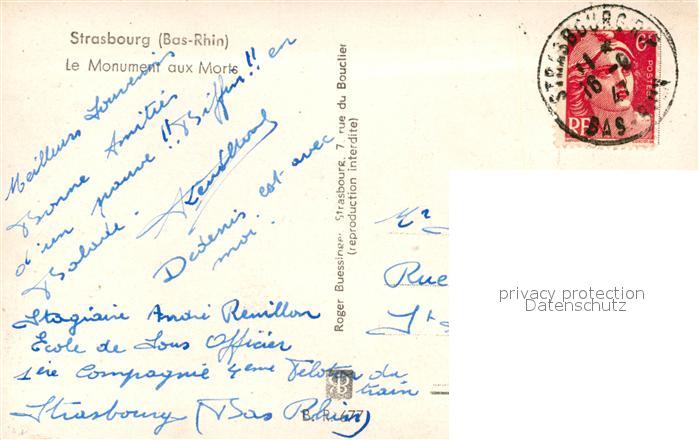 Strasbourg (Bas-Rhin)
Le Monument aux Morts
Meilleurs Souvenirs
Bonne Amitiés
d'un pauvre !! Biffin !! en
Balade.
Dedenis est avec
moi.
Stagiaire André Revillon
Ecole de Sous Officier
1ère Compagnie 4ème Peloton du
train
Strasbourg (Bas Rhin)
B. R. 677
Roger Buessinger, Strasbourg, 7, rue du Bouclier
(reproduction interdite)
STRASBOURG R.P.
11 *
16 -9
47
BAS-RHIN
6F
POSTES
RF
Mr
Rue
St
privacy protection
Datenschutz